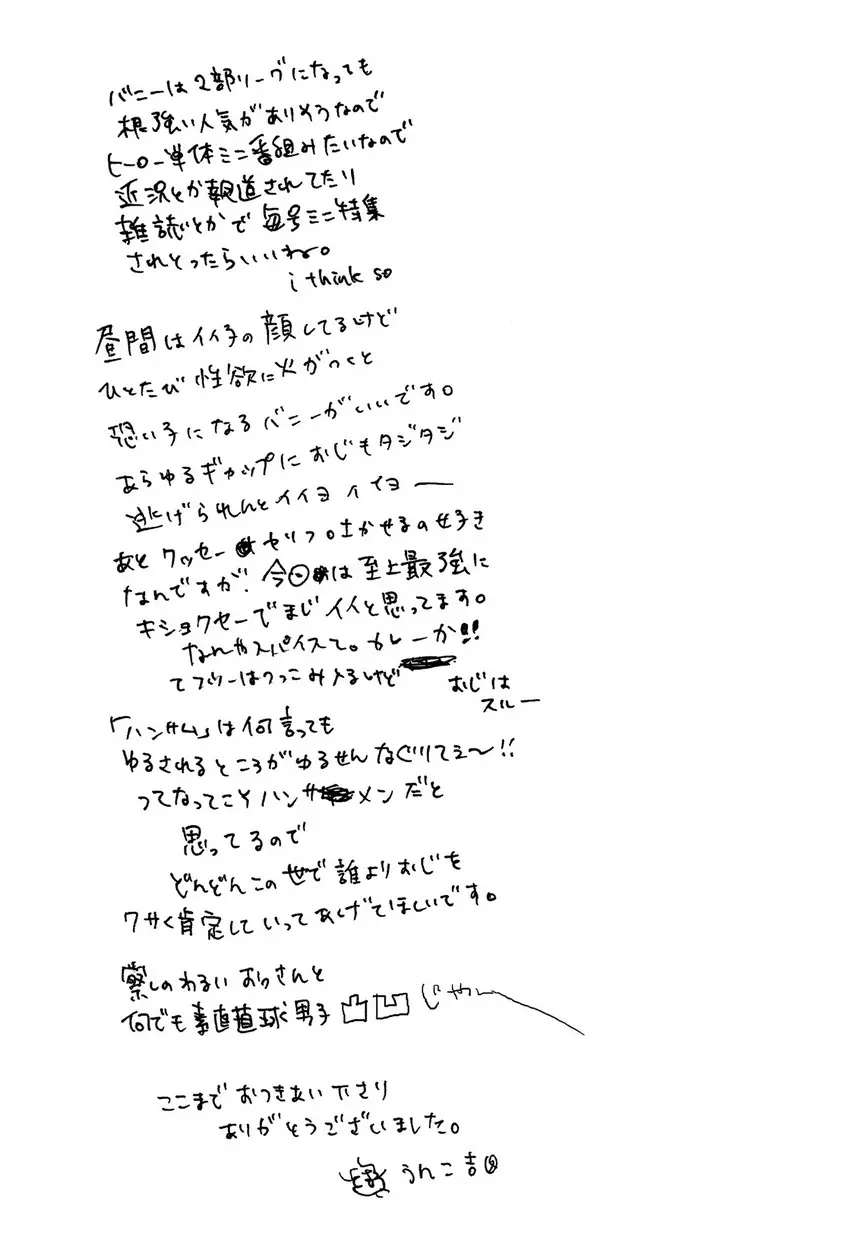 バニーは2部リーグになっても
根強い人気がありそうなので
ヒーロー単体ミニ番組みたいなので
近況とか報道されてたり
雑誌とかで毎号ミニ特集
されとったらいいね。
i think so
昼間はイイ子の顔してるけど
ひとたび性欲に火がつくと
恐い子になるバニーがいいです。
あらゆるギャップにおじもタジタジ
逃げられんとイイヨイイヨー
あとクッセーセリフ吐かせるの好き
なんですが、今回は至上最強に
キショクセーでまじイイと思ってます。
なんやスパイスて。カレーか!!
てフツーはつっこみ入るけど
おじは
スルー
「ハンサム」は何言っても
ゆるされるところがゆるせんなぐりてェ〜!!
ってなってこそハンサメンだと
思ってるので
どんどんこの世で誰よりおじを
クサく肯定していってあげてほしいです。
察しのわるいおっさんと
何でも素直直球男子凸凹じゃー
ここまでおつきあい下さり
ありがとうございました。
うんこ吉